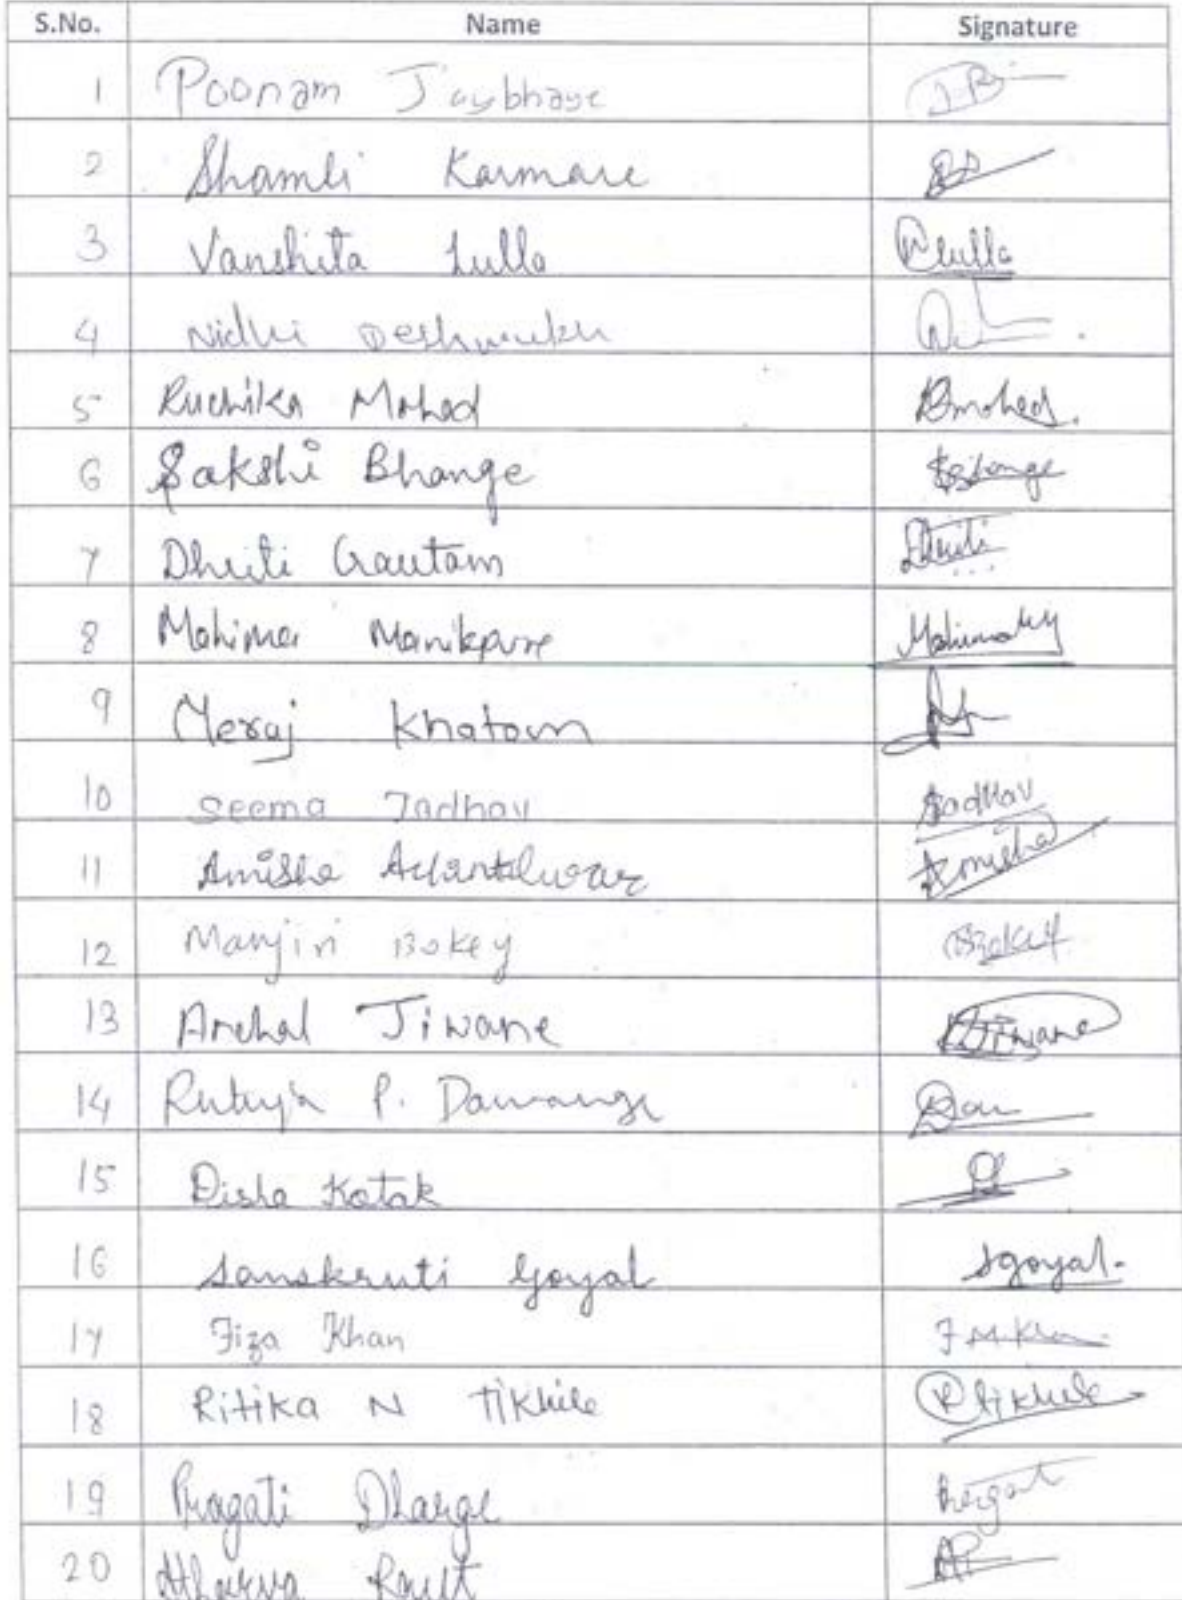 S.No. Name Signature
1 Poonam Jaybhaye
2 Shamli Karmare
3 Vanshita Lulla Vlulla
4 Nidhi Deshmukh
5 Ruchika Mohod Rmohod.
6 Sakshi Bhange
7 Dhriti Gautam Dhriti
8 Mahima Manikpure
9 Meraj Khatoon
10 Seema Jadhav Sadhav
11 Amisha Amisha
12 Manjiri Bokey Bokey
13 Anchal Jiwane AJiwane
14 Rutuja P.
15 Disha Kotak
16 Sanskruti Goyal Sgoyal.
17 Fiza Khan F M.Khan
18 Ritika N Tikhile Rtikhile
19 Pragati Dharge Pragati
20 Atharva Raut